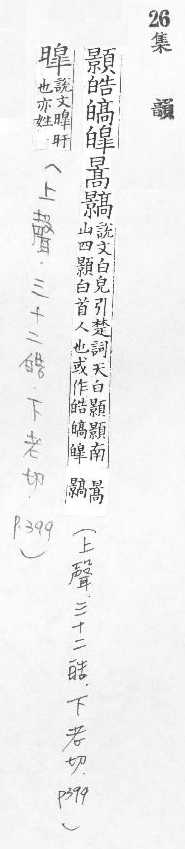 26 集韻
顥皓暠皞暠顥 說文白皃引楚詞天白顥顥南山四顥白首人也或作皓暠皞暠顥
(上聲.三十二皓.下老切.p399)
暤 說文暤旰也亦姓
(上聲.三十二皓.下老切.p.399)